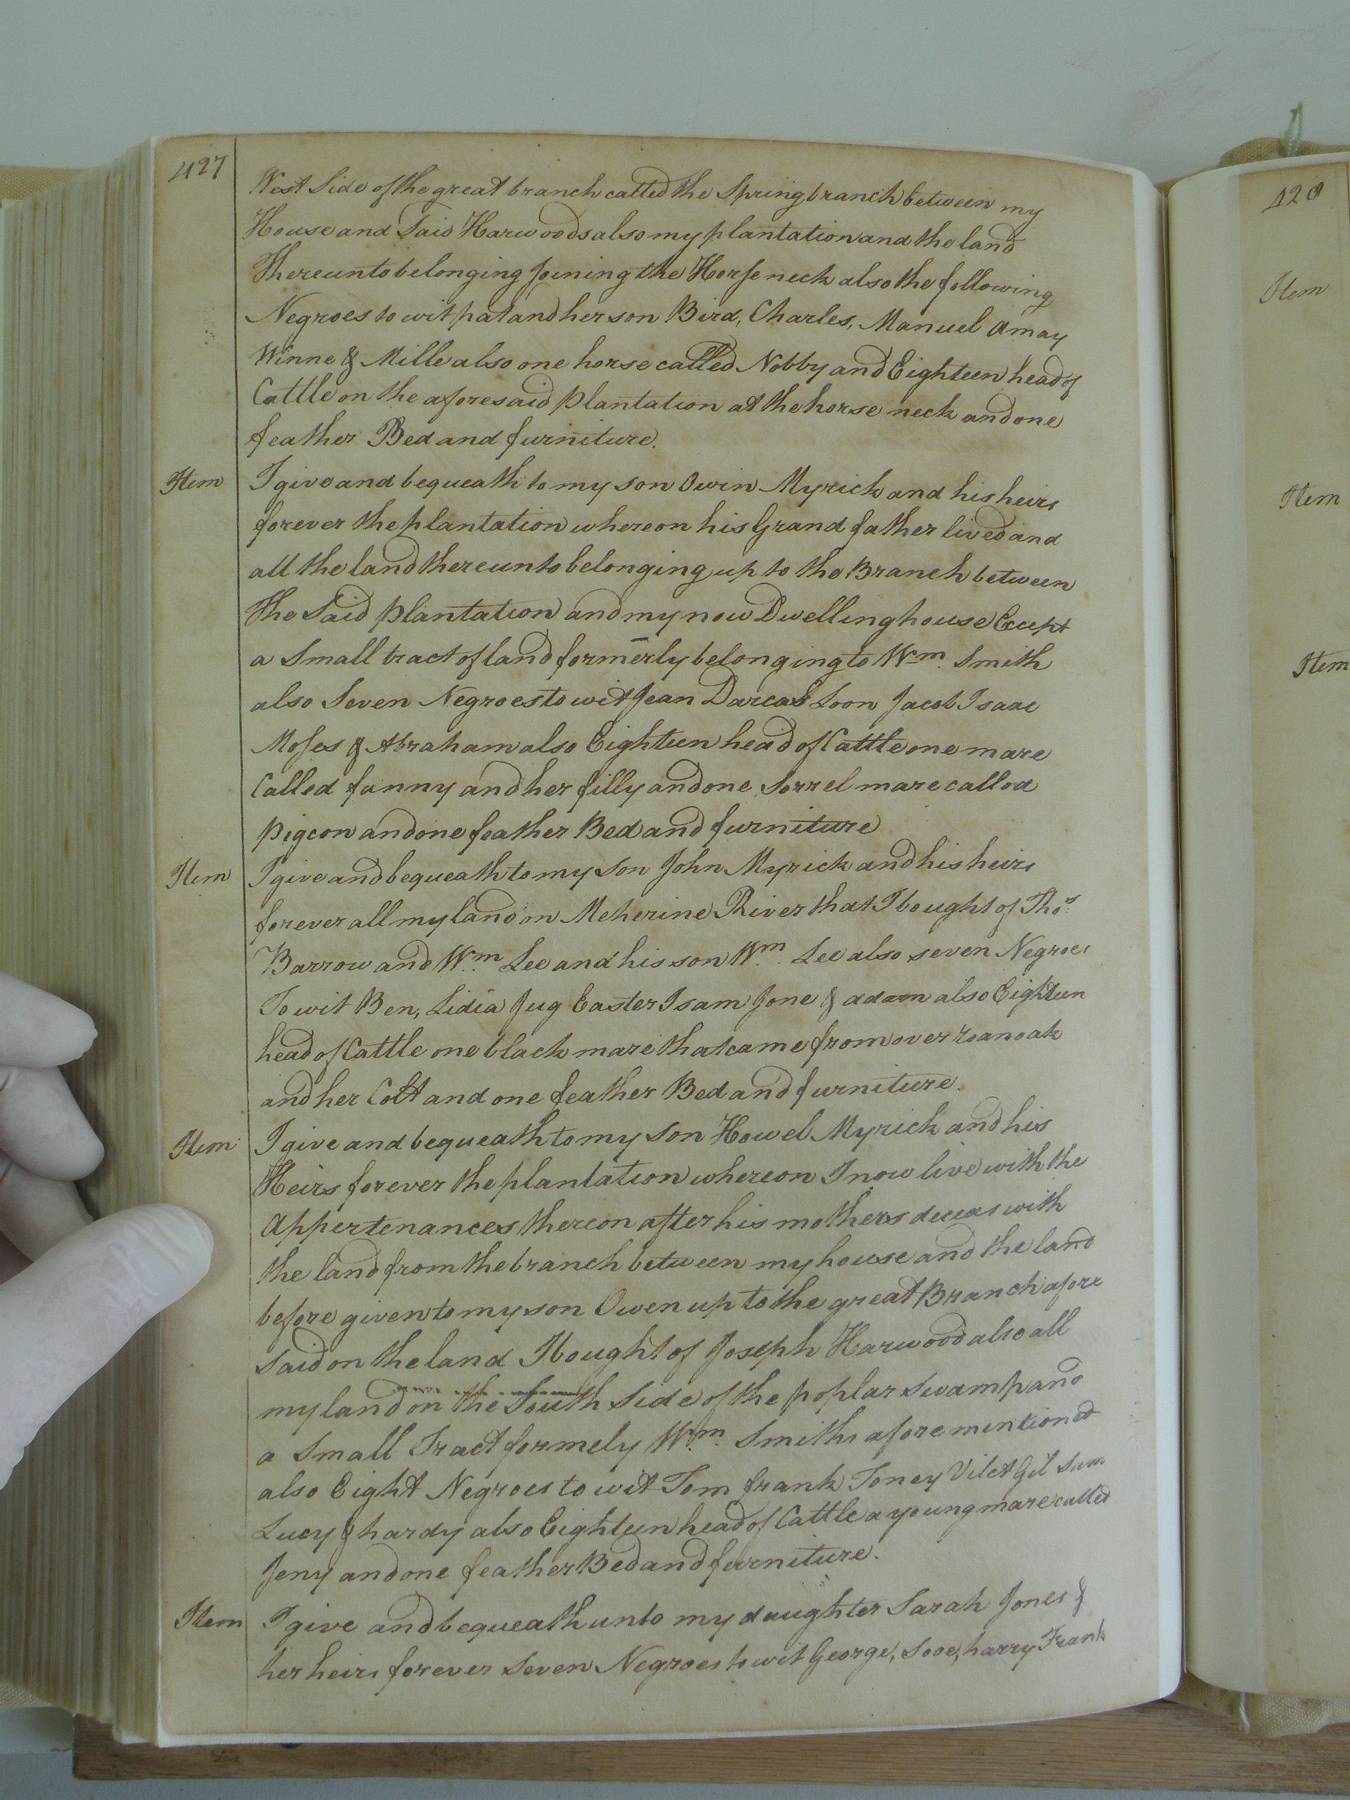 427
West Side of the great branch called the Spring branch between my
House and Said Harwoods also my plantation and the land
Thereunto belonging Joining the Horse neck also the following
Negroes to wit pat and her son Bird, Charles, Manuel Amay
Winne & Mille also one horse called Nobby and Eighteen head of
Cattle on the aforesaid plantation at the horse neck and one
feather Bed and furniture.
Item I give and bequeath to my son Owin Myrick and his heirs
forever the plantation whereon his Grand father lived and
all the land thereunto belonging up to the Branch between
the Said plantation and my now Dwelling house Except
a Small tract of land formerly belonging to Wm. Smith
also Seven Negroes to wit Jean Darcas Loon Jacob Isaac
Moses & Abraham also Eighteen head of Cattle one mare
Called fanny and her filly and one Sorrel mare called
pigeon and one feather Bed and furniture
Item I give and bequeath to my son John Myrick and his heirs
forever all my land on Meherine River that I bought of Thos.
Barrow and Wm. Lee and his son Wm. Lee also seven Negroes
To wit Ben, Lidia Jug Easter Isam Jone & adam also Eighteen
head of Cattle one black mare that came from over roanoak
and her Colt and one feather Bed and furniture.
Item I give and bequeath to my Son Howel Myrick and his
Heirs forever the plantation whereon I now live with the
Appertenances thereon after his mothers deceas with
the land from the branch between my house and the land
before given to my son Owen up to the great Branch afore
said on the land I bought of Joseph Harwood also all
my land on the South Side of the poplar Swamp and
a Small Tract formely Wm. Smiths afore mentioned
also Eight Negroes to wit Tom frank Toney Vilet Gil
Lucy & hardy also Eighteen head of Cattle a young mare called
Jeny and one feather Bed and furniture.
Item I give and bequeath unto my daughter Sarah Jones &
her heirs forever Seven Negroes to wit George, Sooe, harry Frank
428
Item
Item
Item